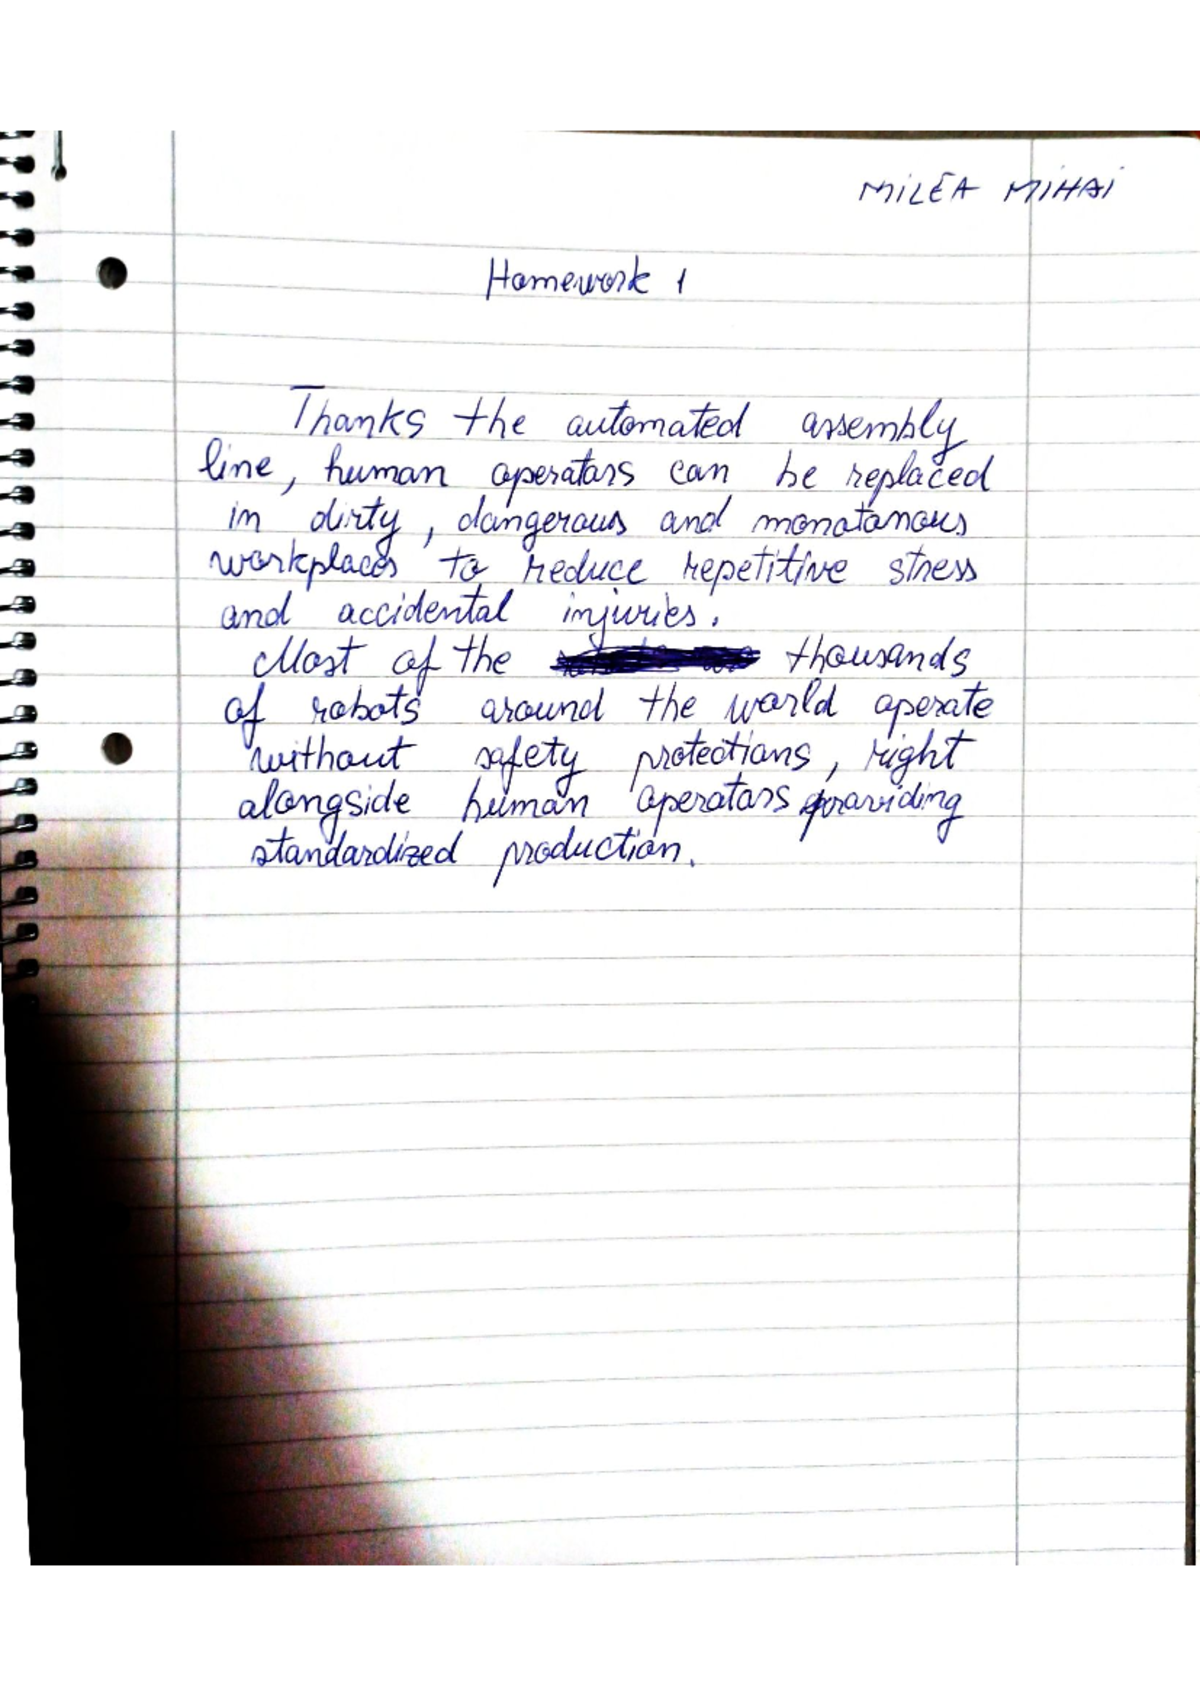 MILEA MIHAI
Homework 1
Thanks the automated assembly
line, human operators can be replaced
in dirty, dangerous and monotonous
workplaces to reduce repetitive stress
and accidental injuries.
Most of the thousands
of robots around the world operate
without safety protections, right
alongside human operators providing
standardized production.